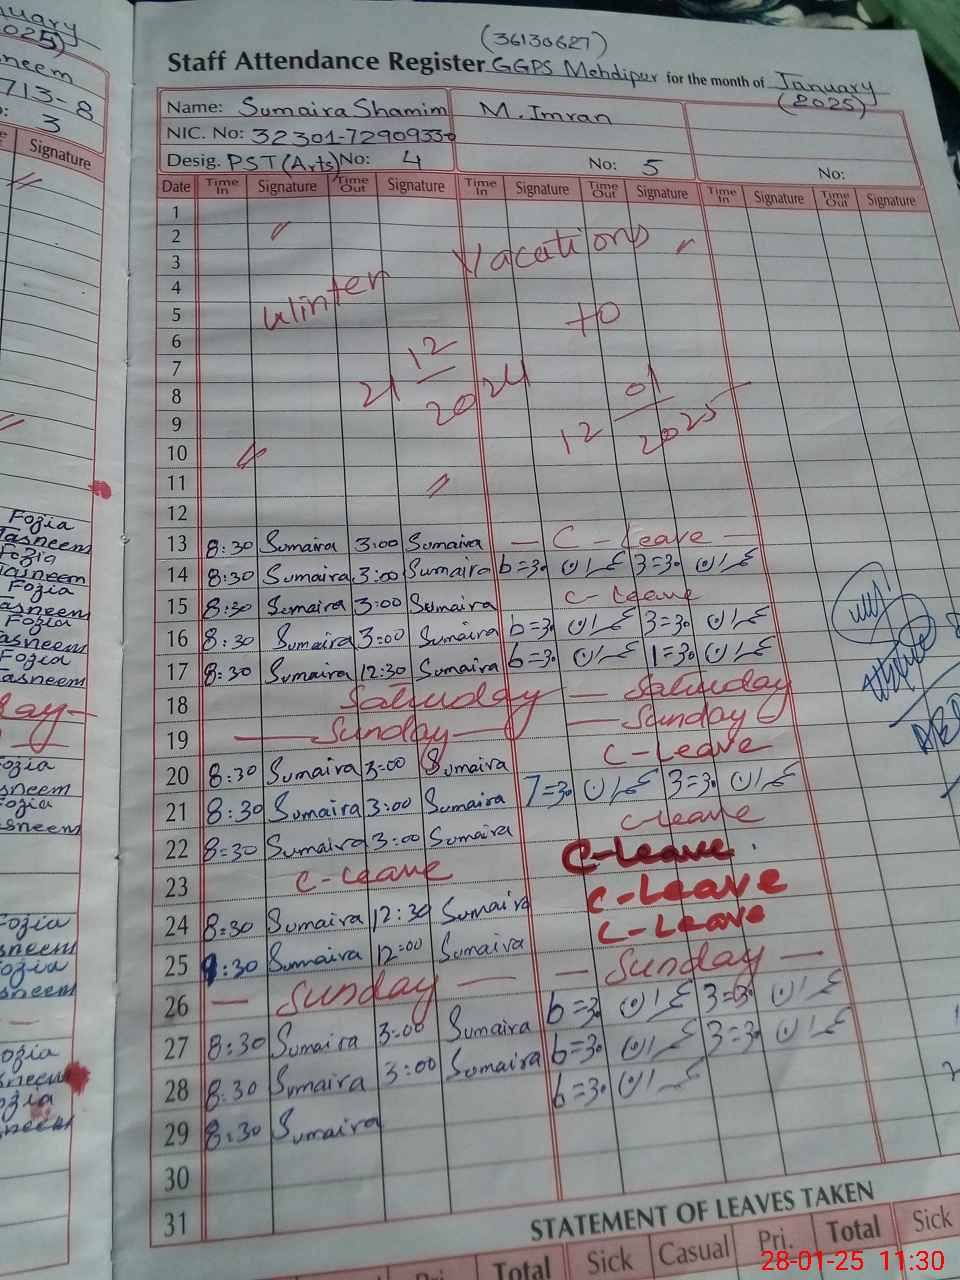 (36130627)
Staff Attendance Register GGPS Mehdipur for the month of January
(2025)
Name: Sumaira Shamim M. Imran
NIC. No: 32301-7290933-0
Desig. PST (Arts) No: 4 No: 5 No:
Date Time In Signature Time Out Signature Time In Signature Time Out Signature Time In Signature Time Out Signature
1
2 "
3 Vacations "
4 Winter
5 to
6
7 12
8 21 2024 01
9 12 2025
10 "
11 "
12
13 8:30 Sumaira 3:00 Sumaira — C - Leave —
14 8:30 Sumaira 3:00 Sumaira 6=30 عمران 3=30 عمران
15 8:30 Sumaira 3:00 Sumaira C - Leave
16 8:30 Sumaira 3:00 Sumaira 6=30 عمران 3=30 عمران
17 8:30 Sumaira 12:30 Sumaira 6=30 عمران 1=30 عمران
18 Saturday — Saturday
19 — Sunday — — Sunday
20 8:30 Sumaira 3:00 Sumaira C-Leave
21 8:30 Sumaira 3:00 Sumaira 7=30 عمران 3=30 عمران
22 8=30 Sumaira 3:00 Sumaira C-leave
23 C-Leave C-Leave.
24 8:30 Sumaira 12:30 Sumaira C-Leave
25 9:30 Sumaira 12:00 Sumaira C-Leave
26 — Sunday — — Sunday —
27 8:30 Sumaira 3:00 Sumaira 6=30 عمران 3=30 عمران
28 8:30 Sumaira 3:00 Sumaira 6=30 عمران 3=30 عمران
29 8:30 Sumaira 6=30 عمران
30
31
STATEMENT OF LEAVES TAKEN
Pri. Total Sick Casual Pri. Total Sick
28-01-25 11:30
uary
025)
neem
713-8
3
Signature
"
Fozia
Tasneem
Fozia
Tasneem
Fozia
Tasneem
Fozia
Tasneem
Fozia
Tasneem